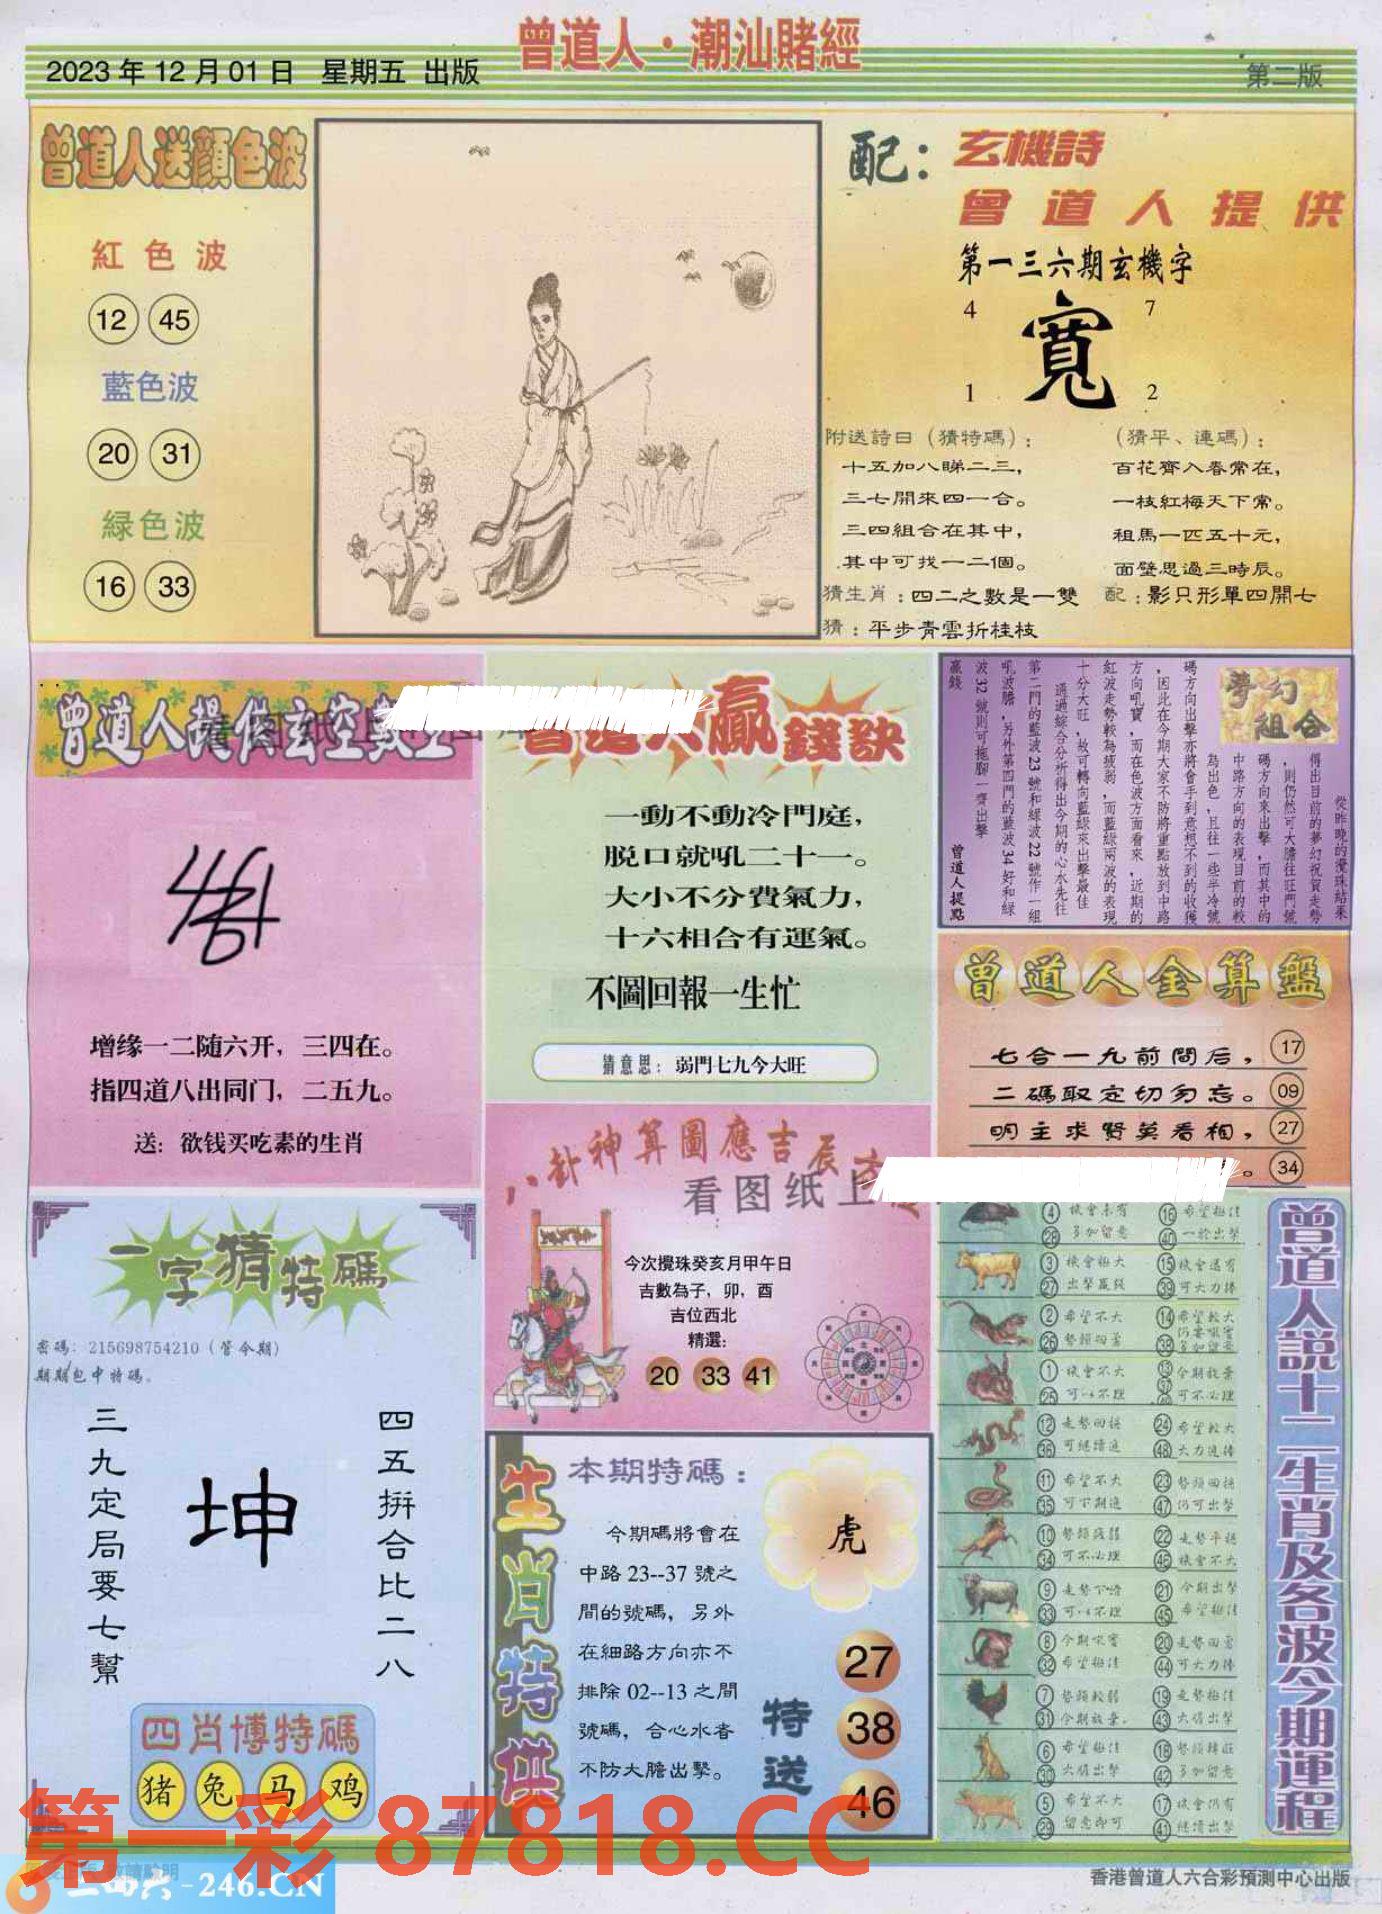 曾道人·潮汕賭經
2023年12月01日 星期五 出版
第二版
曾道人送顏色波
紅色波
12 45
藍色波
20 31
緑色波
16 33
配：玄機詩
曾道人提供
第一三六期玄機字
4 7
寬
1 2
附送詩曰（猜特碼）：
十五加八睇二三，
三七開來四一合。
三四組合在其中，
其中可找一二個。
（猜平、連碼）：
百花齊入春常在，
一枝紅梅天下常。
祖馬一匹五十元，
面壁思過三時辰。
猜生肖：四二之數是一雙
配：影只形單四開七
猜：平步青雲折桂枝
曾道人提供玄空數
增缘一二随六开，三四在。
指四道八出同门，二五九。
送：欲钱买吃素的生肖
贏錢訣
一動不動冷門庭，
脫口就吼二十一。
大小不分費氣力，
十六相合有運氣。
不圖回報一生忙
猜意思：弱門七九今大旺
夢幻組合
從昨晚的攪珠結果
得出目前的夢幻祝賀走勢
，則仍然可大膽往旺門號
碼方向來出擊，而其中的
中路方向的表現目前的較
為出色，且往一些半冷號
碼方向出擊亦將會手到意想不到的收獲
，因此在今期大家不防將重點放到中路
方向吼寶，而在色波方面看來，近期的
紅波走勢較為疲弱，而藍綠兩波的表現
十分大旺，故可轉向藍綠來出擊最佳
通過綜合分析得出今期的心水先往
第二門的藍波23號和綠波22號作一組
吼波膽，另外第四門的藍波34好和綠
波32號則可拖腳一齊出擊
贏錢
曾道人提點
曾道人金算盤
七合一九前問后， 17
二碼取定切勿忘。 09
明主求賢英看相， 27
。 34
八卦神算圖應吉辰
看图纸上
今次攪珠癸亥月甲午日
吉數為子，卯，酉
吉位西北
精選：
20 33 41
一字猜特碼
密碼：215698754210（管今期）
期期包中特碼。
四五拼合比二八
坤
三九定局要七幫
四肖博特碼
猪 兔 马 鸡
生肖特供
本期特碼：
今期碼將會在
中路23--37號之
間的號碼，另外
在細路方向亦不
排除02--13之間
號碼，合心水者
不防大膽出擊。
虎
特送
27
38
46
曾道人説十二生肖及各波今期運程
4 機會未有 16 希望極佳
28 多加留意 40 一於出擊
3 機會極大 15 機會還有
27 出擊贏錢 39 可大力捧
2 希望不大 14 希望較大
26 38
1 機會不大 今期放棄
25 可以不理 可不必理
12 走勢回穩 24 希望較大
36 可繼續追 48 大力追捧
11 希望不大 23 勢頭回穩
35 可下期追 47 仍可出擊
10 勢頭疲弱 22 走勢平穩
34 可不必理 46 機會不大
9 走勢下滑 21 今期出擊
33 可以不理 45 希望極佳
8 今期吼寶 20 走勢回勇
32 希望極佳 44 可大力捧
7 勢頭較弱 19 走勢極佳
31 今期放棄。 43 大膽出擊
6 希望極佳 18
30 大膽出擊 42 多加留意
5 希望不大 17 機會仍有
29 留意即可 41 繼續出擊
第一彩 87818.CC
二四六-246.CN
香港曾道人六合彩預測中心出版